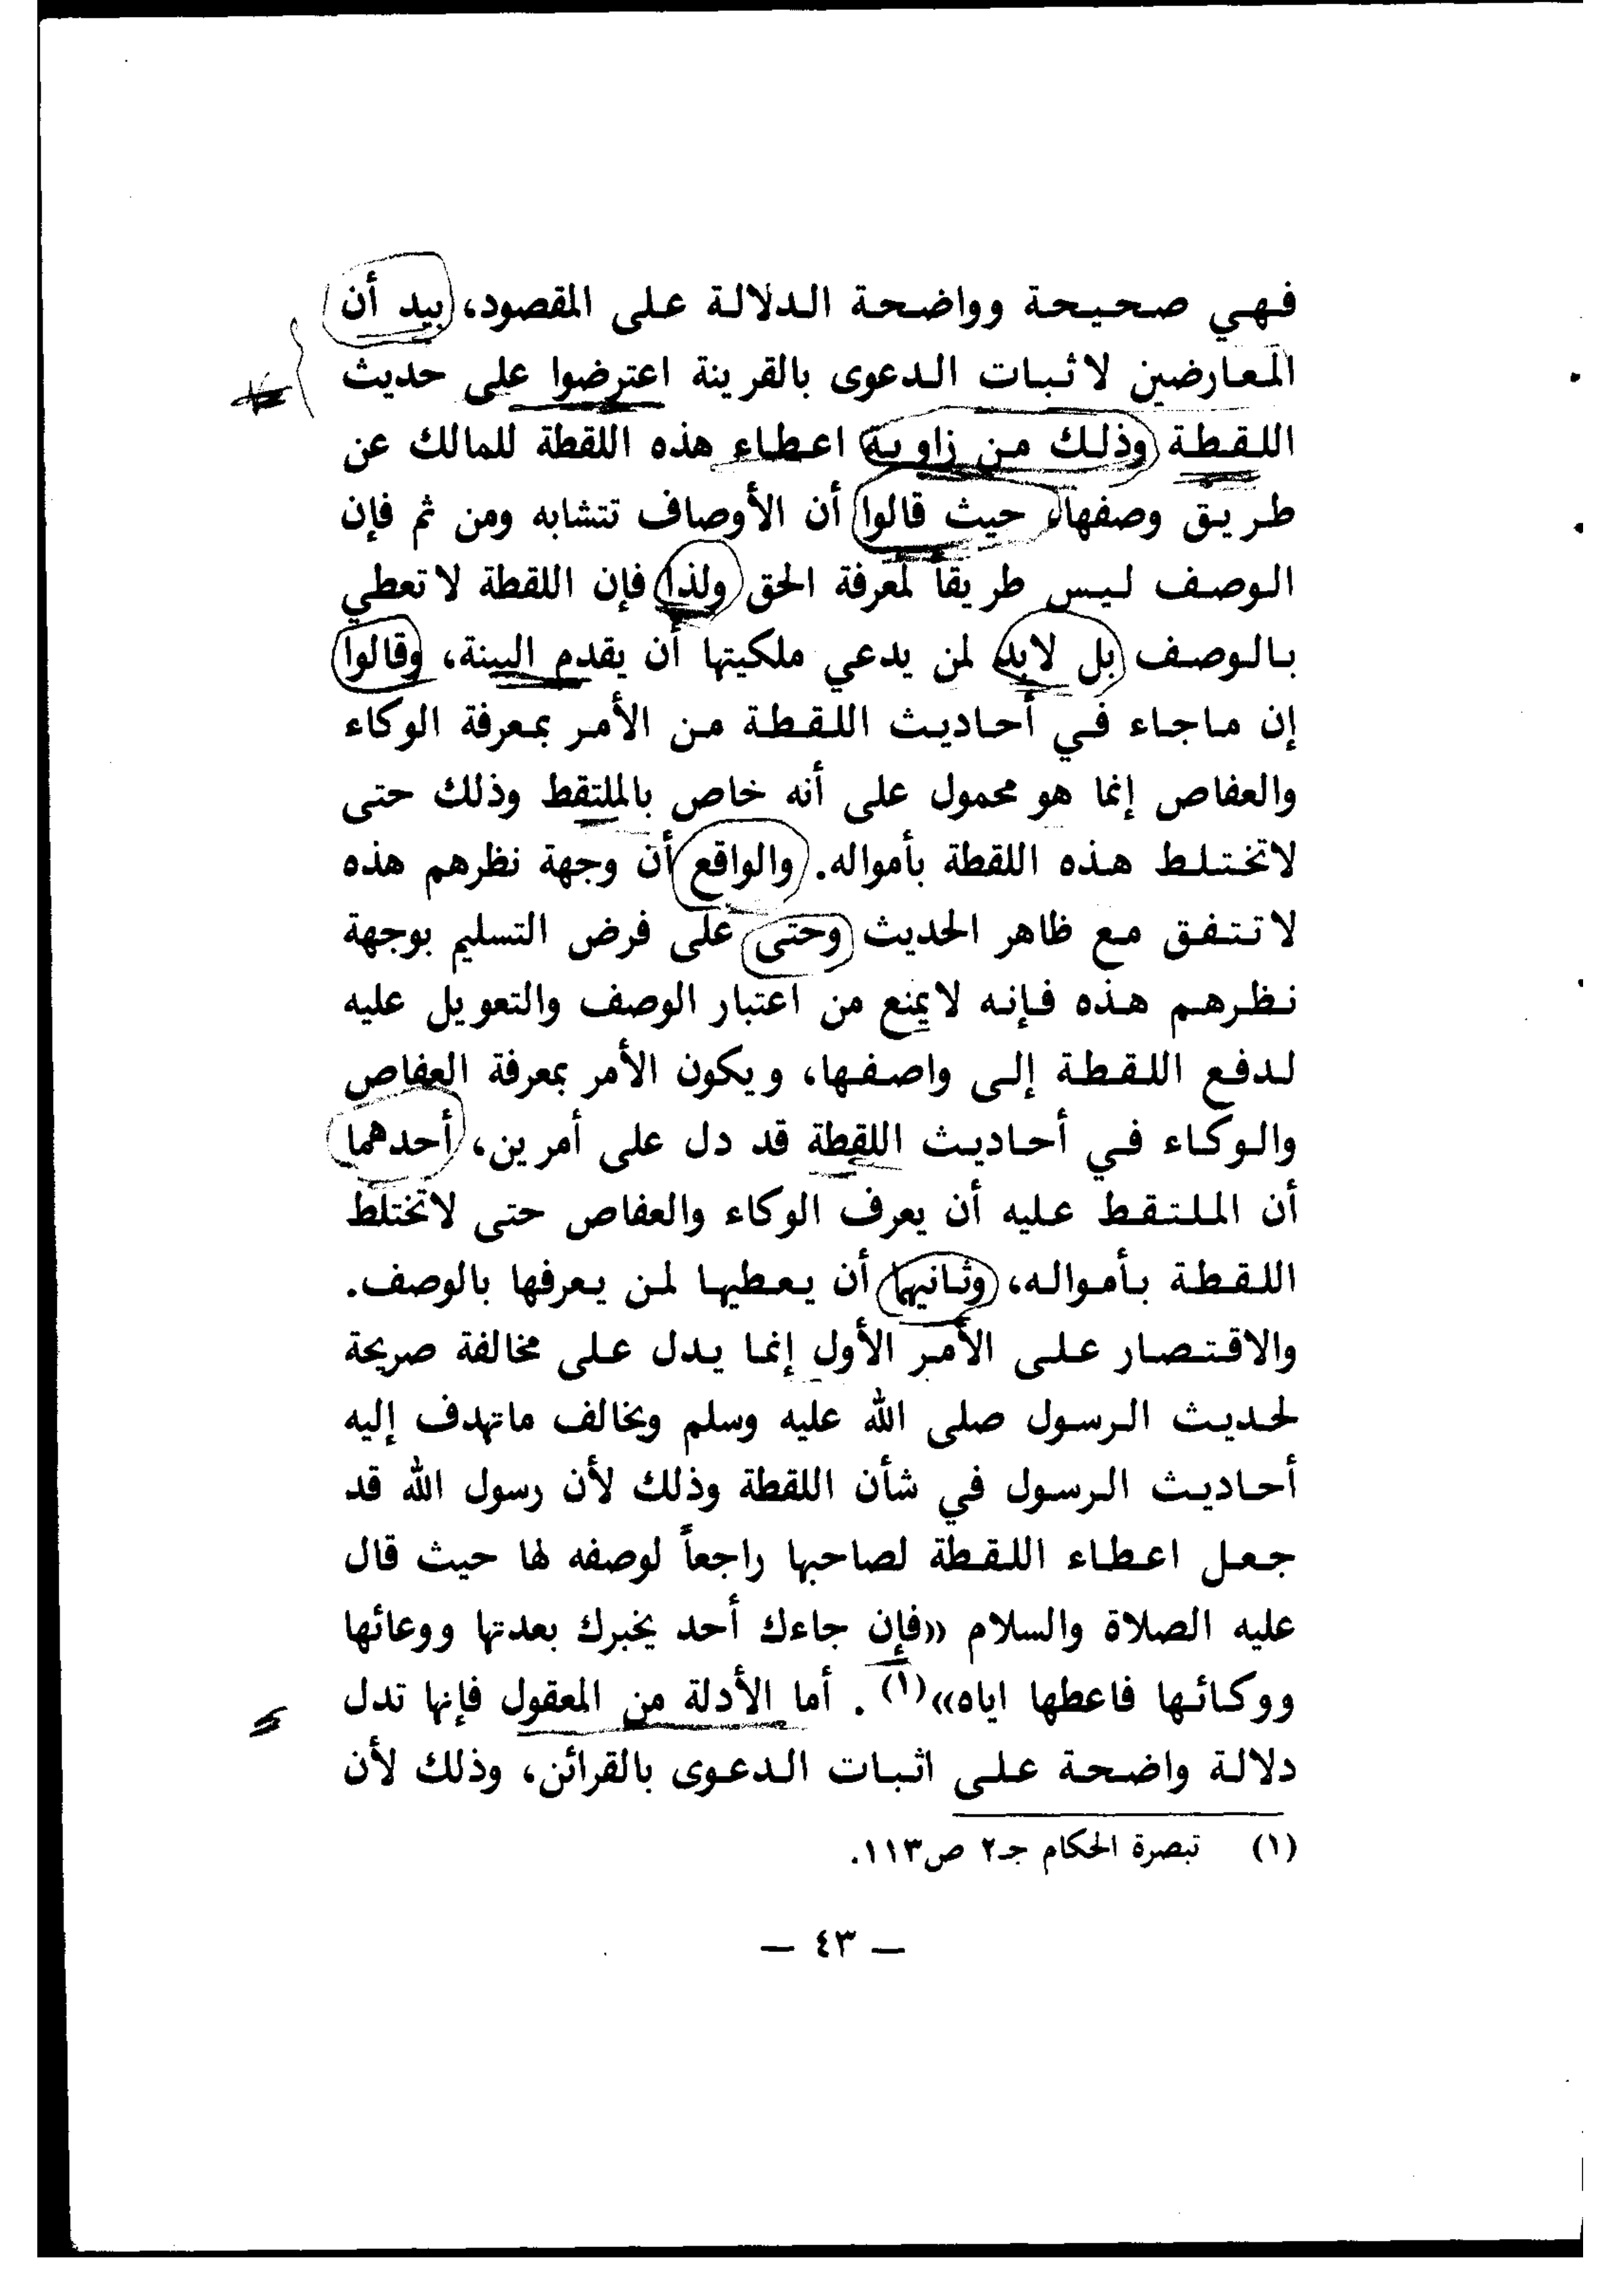 فهي صحيحة وواضحة الدلالة على المقصود، بيد أن
المعارضين لاثبات الدعوى بالقرينة اعترضوا على حديث
اللقطة وذلك من زاوية اعطاء هذه اللقطة للمالك عن
طريق وصفها، حيث قالوا أن الأوصاف تتشابه ومن ثم فإن
الوصف ليس طريقاً لمعرفة الحق ولذا فإن اللقطة لا تعطي
بالوصف بل لابد لمن يدعي ملكيتها أن يقدم البينة، وقالوا
إن ماجاء في أحاديث اللقطة من الأمر بمعرفة الوكاء
والعفاص إنما هو محمول على أنه خاص بالملتقط وذلك حتى
لا تختلط هذه اللقطة بأمواله. والواقع أن وجهة نظرهم هذه
لا تتفق مع ظاهر الحديث وحتى على فرض التسليم بوجهة
نظرهم هذه فإنه لايمنع من اعتبار الوصف والتعويل عليه
لدفع اللقطة إلى واصفها، ويكون الأمر بمعرفة العفاص
والوكاء في أحاديث اللقطة قد دل على أمرين، أحدهما
أن الملتقط عليه أن يعرف الوكاء والعفاص حتى لا تختلط
اللقطة بأمواله، وثانيها أن يعطيها لمن يعرفها بالوصف.
والاقتصار على الأمر الأول إنما يدل على مخالفة صريحة
لحديث الرسول صلى الله عليه وسلم ويخالف ماتهدف إليه
أحاديث الرسول في شأن اللقطة وذلك لأن رسول الله قد
جعل اعطاء اللقطة لصاحبها راجعاً لوصفه لها حيث قال
عليه الصلاة والسلام «فإن جاءك أحد يخبرك بعدتها ووعائها
ووكائها فاعطها اياه»(١) . أما الأدلة من المعقول فإنها تدل
دلالة واضحة على اثبات الدعوى بالقرائن، وذلك لأن
(١) تبصرة الحكام جـ٢ ص١١٣.
— ٤٣ —